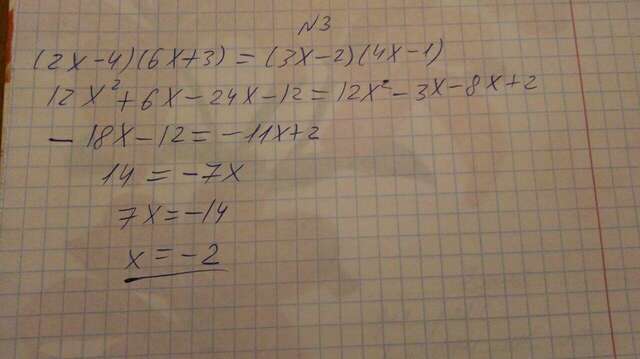 N3
(2x-4)(6x+3) = (3x-2)(4x-1)
12x²+6x-24x-12=12x²-3x-8x+2
-18x-12=-11x+2
14 = -7x
7x=-14
x=-2